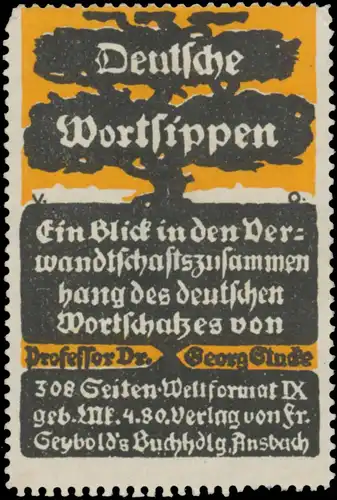 Deutsche
Wortsippen
V. O.
Ein Blick in den Ver=
wandtschaftszusammen
hang des deutschen
Wortschatzes von
Professor Dr. Georg Stucke
308 Seiten-Weltformat IX
geb. Mk. 4.80. Verlag von Fr.
Seybold's Buchhdlg, Ansbach